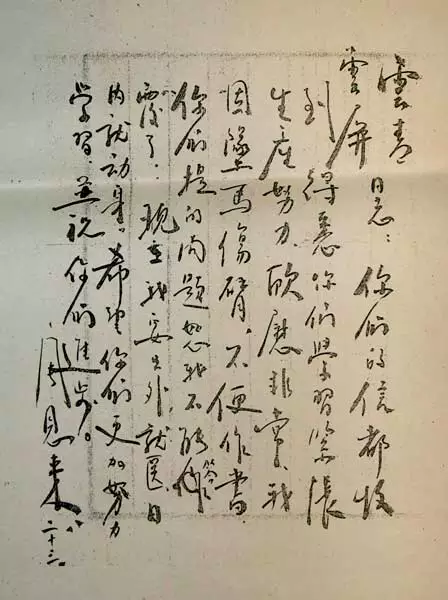 雲青
雲屏同志：你们的信都收
到 得悉你们學習緊張
生產努力、欣慰非常、我
因墜馬傷臂、不便作書、
你们提的问題恕我不能作答
覆了。現在我要出外就医、日
内就动身。希望你们更加努力
学習、並祝你们進步。
周恩来
八、二十三。